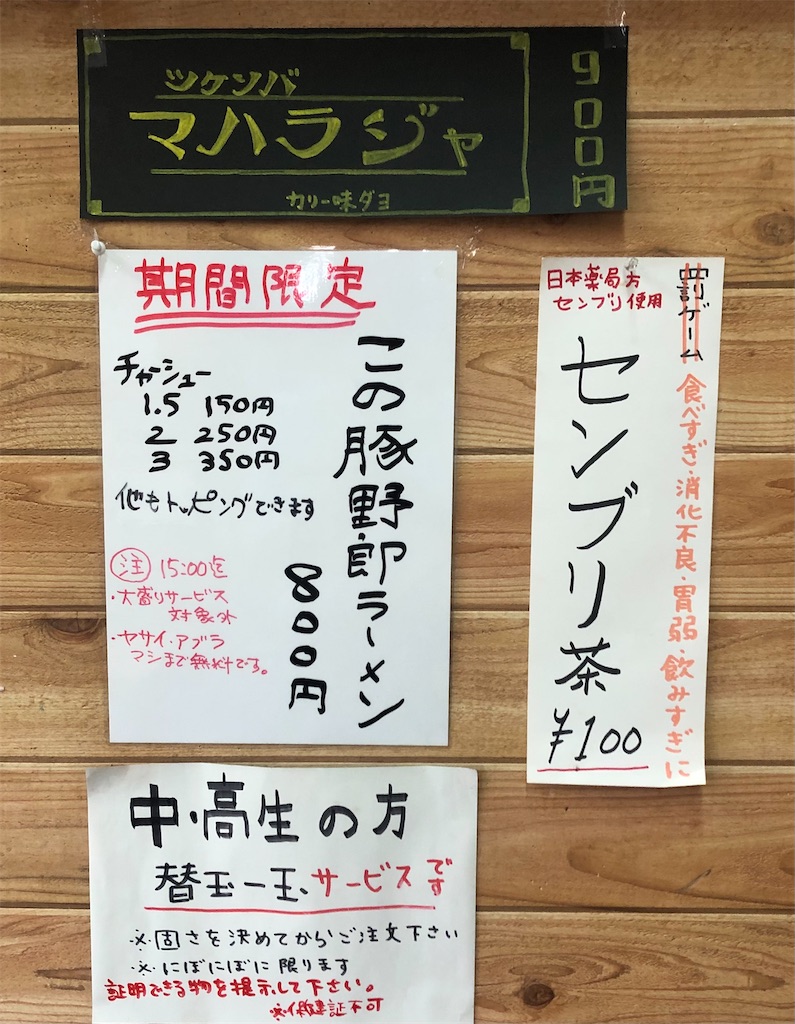 ツケソバ
マハラジャ
カリー味ダヨ
900円
期間限定
この豚野郎ラーメン
800円
チャーシュー
1.5 150円
2 250円
3 350円
他もトッピングできます
注 15:00迄
・大盛りサービス
対象外
・ヤサイ・アブラ
マシまで無料です。
罰ゲーム
食べすぎ・消化不良・胃弱・飲みすぎに
日本薬局方
センブリ使用
センブリ茶
¥100
中・高生の方
替玉一玉、サービスです
※固さを決めてからご注文下さい
※にぼにぼに限ります
証明できる物を提示して下さい。
※保健証不可